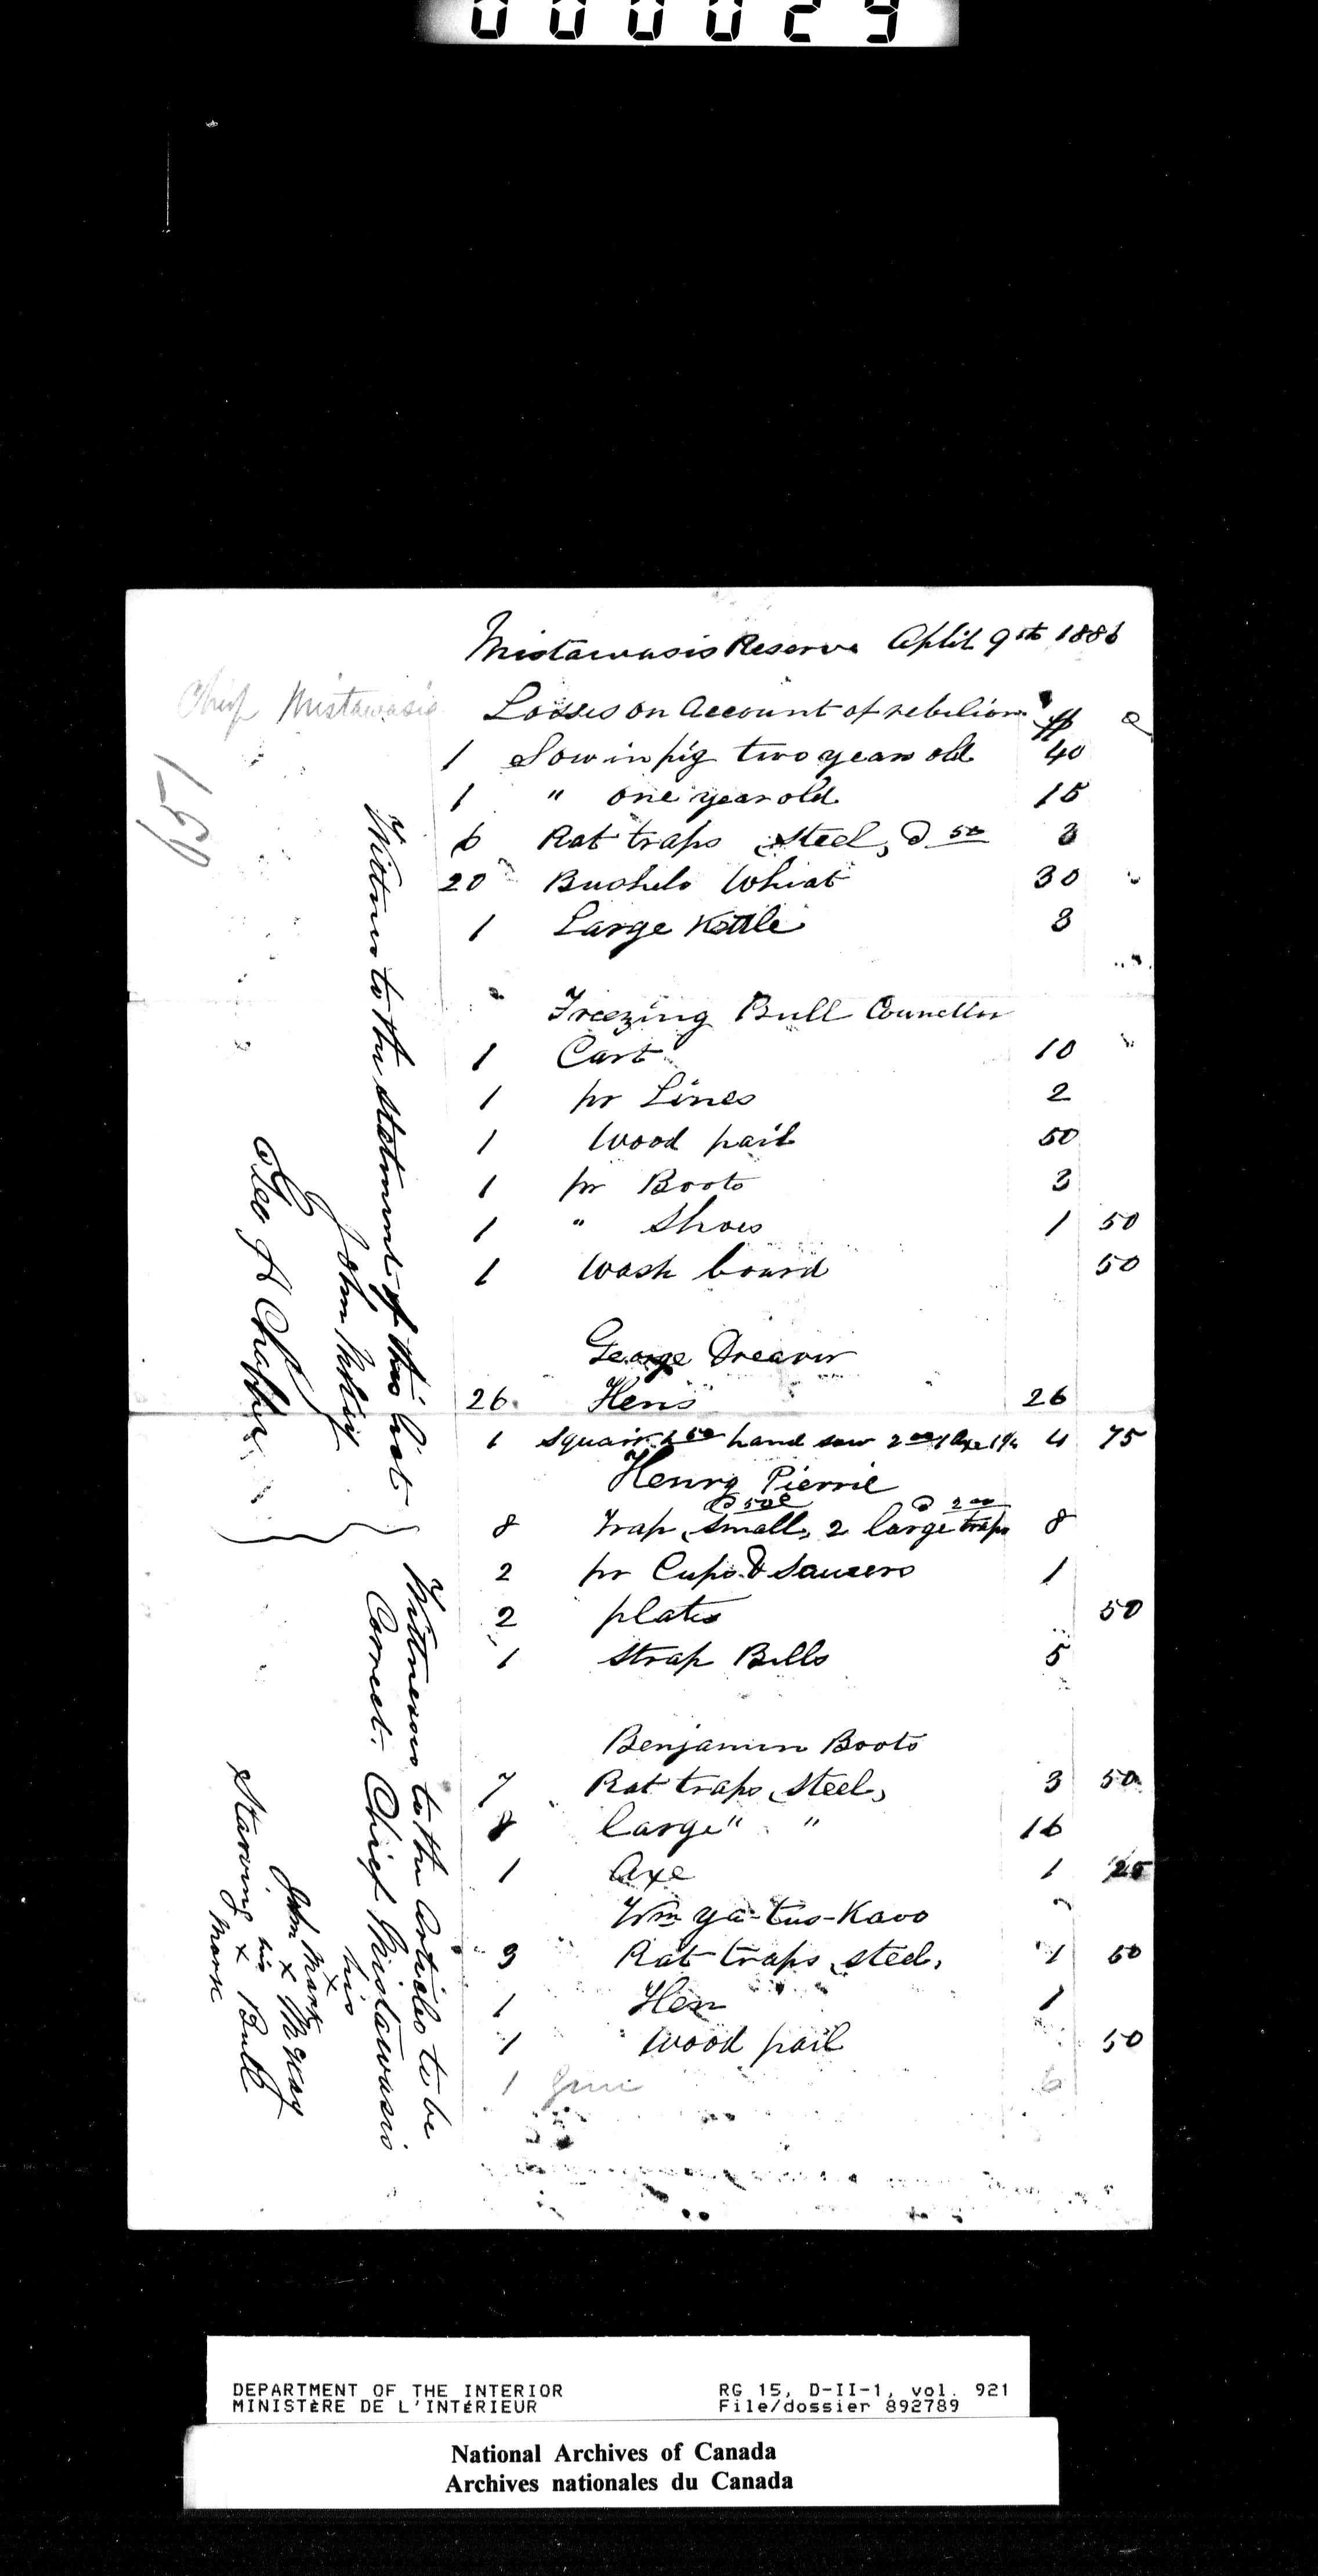 000029
Mistawasis Reserve April 9th 1886
Chief Mistawasis Losses on Account of rebelion $ c
1 Sow in pig two years old 40
1 " one year old 15
6 Rat traps steel, @ 50 3
20 Bushels Wheat 30
1 Large Kettle 3
Freezing Bull Councellor
1 Cart 10
1 pr Lines 2
1 Wood pail 50
1 pr Boots 3
1 " Shoes 1 50
1 Wash board 50
George Dreaver
26 Hens 26
1 Squair hand saw 2 00 1 Axe 4 75
Henry Pierrie
@ 50c @ 2 00
8 Trap, small, 2 large traps 8
2 pr Cups & Saucers 1
2 plates 50
1 Strap Bells 5
Benjamin Boots
7 Rat traps, steel, 3 50
8 Large " " 16
1 Axe 1 25
Wm Ya-tus-Kavo
3 Rat traps, steel. 1 50
1 Hen 1
1 Wood pail 50
1 Gun 6
651
Witness to the statement of this list
John
Geo A Chaffey
Wittnesses to the Articles to be
Correct. Chief Mistawasis
his
x
John x McKay
mark
Starving his x Bull
mark
DEPARTMENT OF THE INTERIOR
MINISTÈRE DE L'INTÉRIEUR
RG 15, D-II-1, vol. 921
File/dossier 892789
National Archives of Canada
Archives nationales du Canada